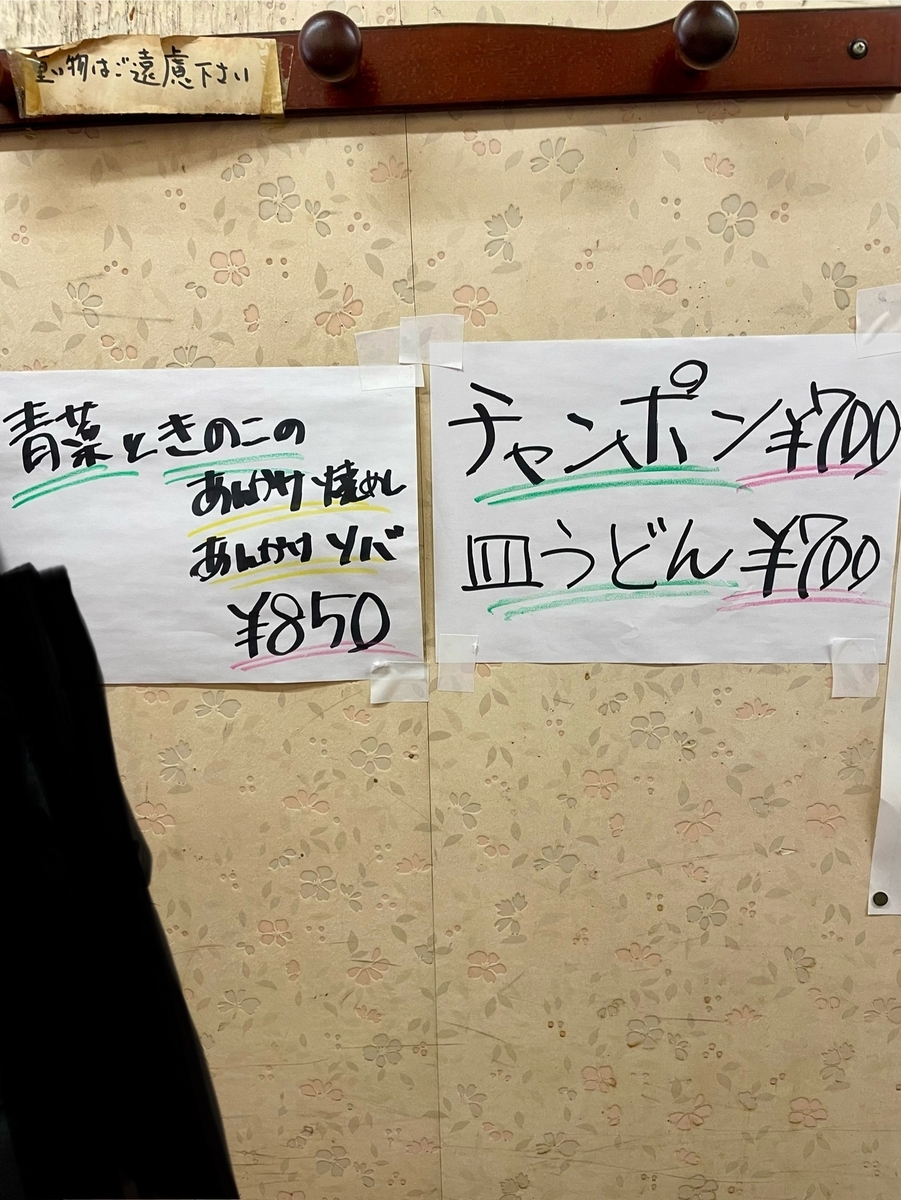 重い物はご遠慮下さい
青菜ときのこの
あんかけ焼めし
あんかけソバ
¥850
チャンポン¥700
皿うどん¥700